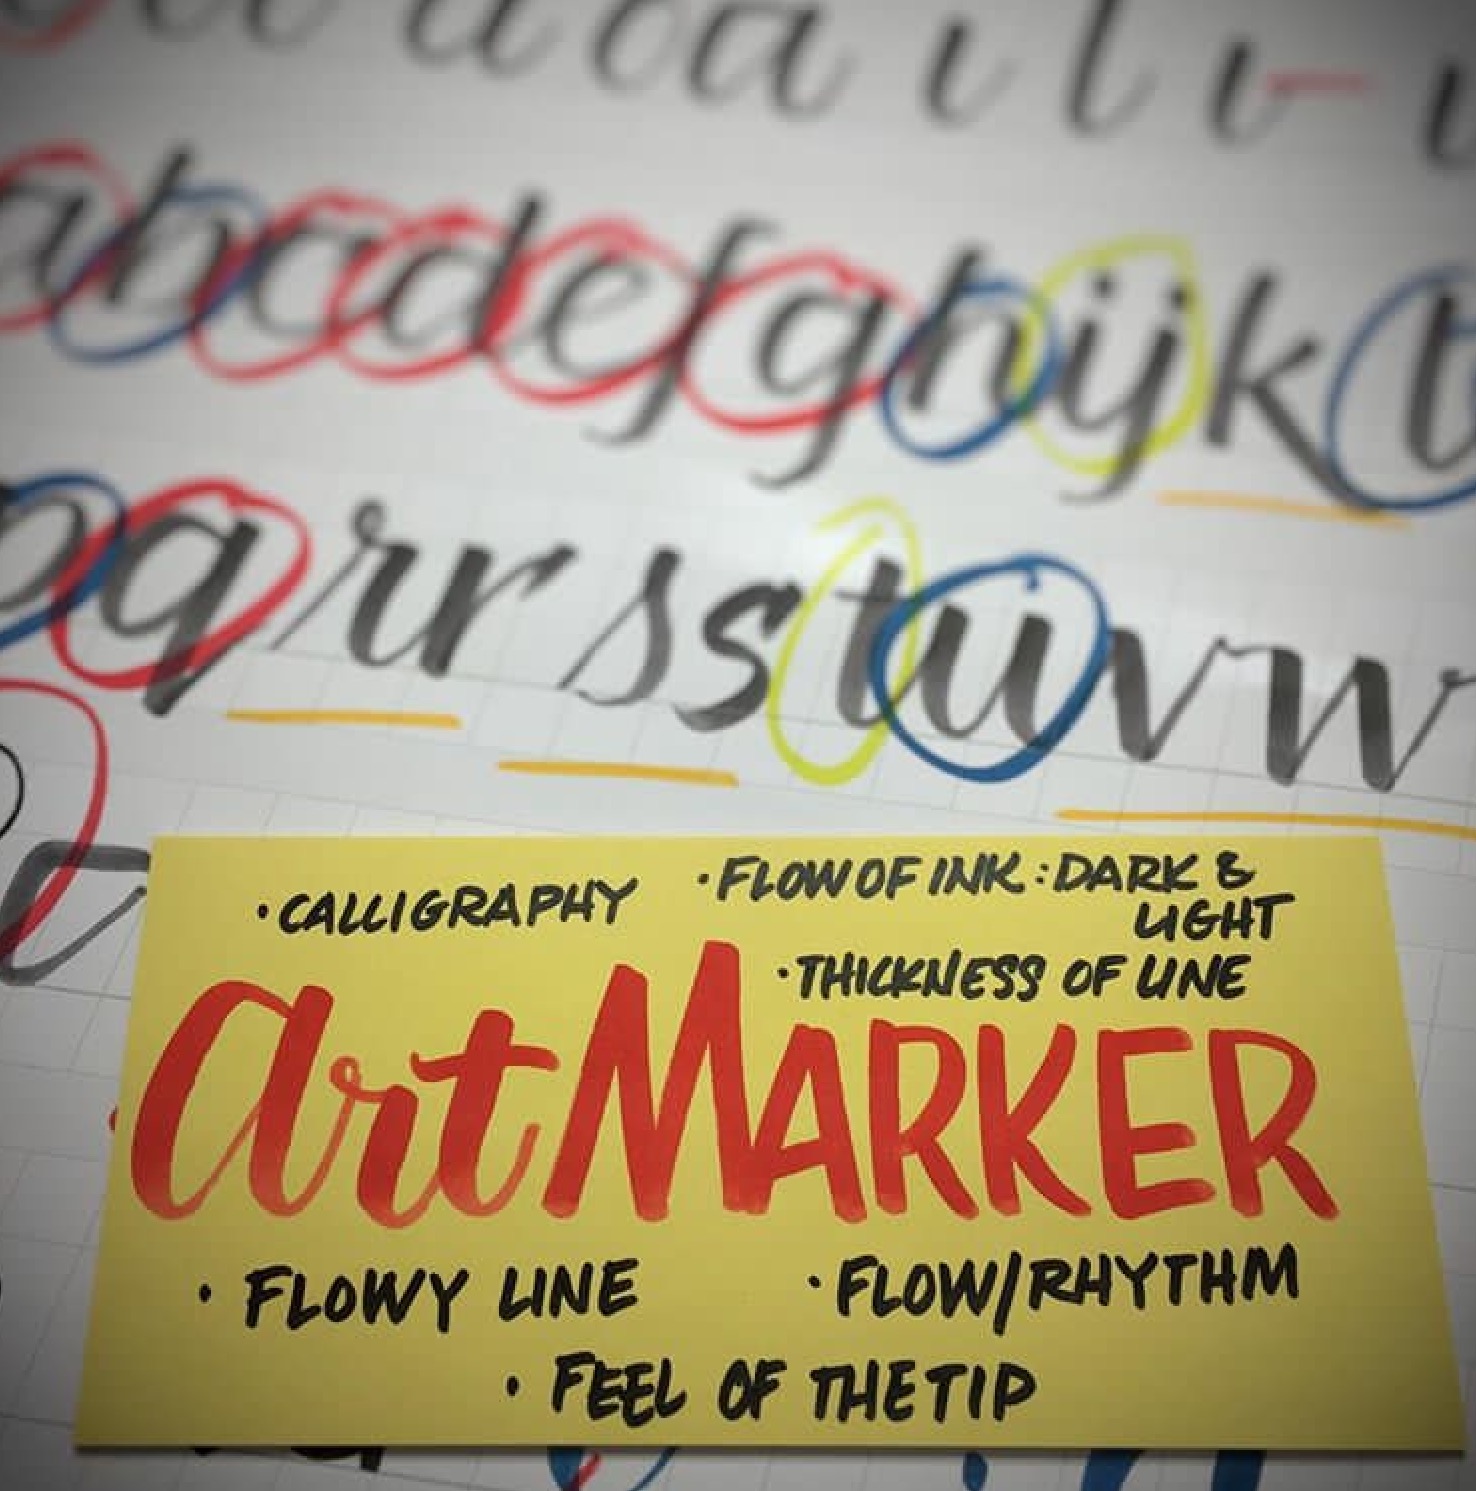 a b c d e f g h i j k
q r r s s t u v w
· CALLIGRAPHY
· FLOW OF INK : DARK &
LIGHT
· THICKNESS OF LINE
art MARKER
· FLOWY LINE
· FLOW/RHYTHM
· FEEL OF THE TIP